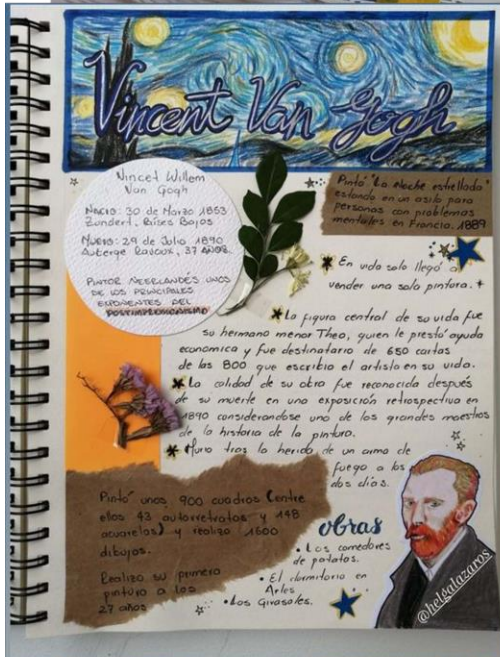 Vincent Van Gogh
Vincet Willem
Van Gogh
Nacio: 30 de Marzo 1853
Zundert, Países Bajos
Murio: 29 de Julio 1890
Auberge Ravoux, 37 AÑOS.
PINTOR NEERLANDÉS UNOS
DE LOS PRINCIPALES
EXPONENTES DEL
POSTIMPRESIONISMO
Pintó "La noche estrellada"
estando en un asilo para
personas con problemas
mentales en Francia. 1889
En vida solo llegó a
vender una solo pintura.
La figura central de su vida fue
su hermano menor Theo, quien le prestó ayuda
economica y fue destinatario de 650 cartas
de las 800 que escribio el artista en su vida.
La calidad de su obra fue reconocida después
de su muerte en una exposición retrospectiva en
1890 considerandose uno de los grandes maestros
de la historia de la pintura.
Murio tras la herida de un arma de
fuego a los
dos días.
Pintó unos 900 cuadros (entre
ellos 43 autorretratos y 148
acuarelas) y realizo 1600
dibujos.
Realizo su primera
pintura a los
27 años
obras
• Los comedores
de patatas.
• El dormitorio en
Arles
• Los Girasoles.
@helgalazaros